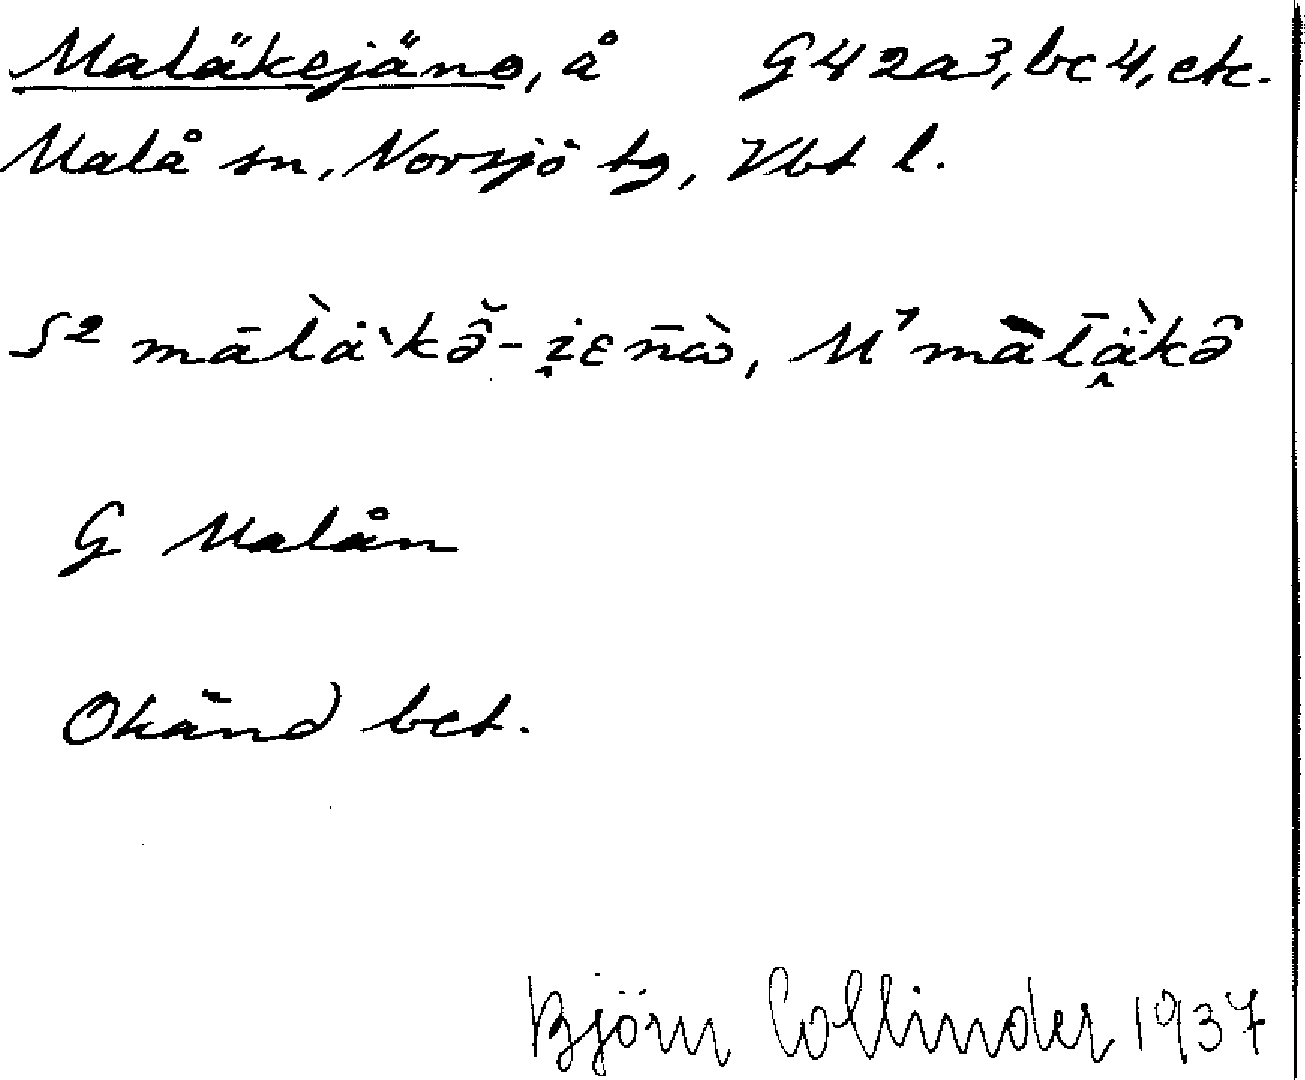 Maläkejäno, å G42a3, bc4, etc.
Malå sn, Norsjö tg, Vbt l.
S² mālà̇ˋkə̑̆-i̮ɛn̄ὼ, M¹ màl̄ä̭̀kə̑
G Malån
Okänd bet.
Björn Collinder 1937